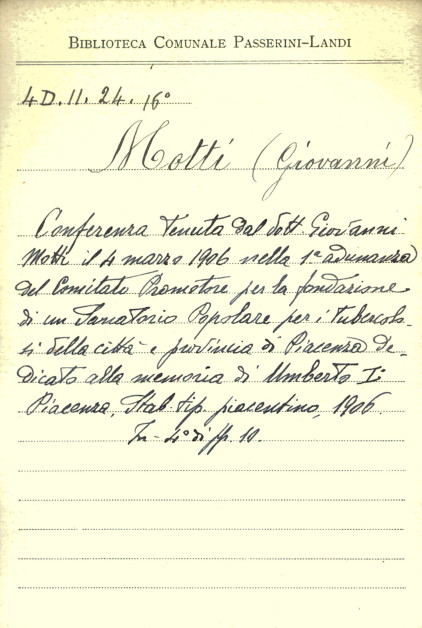 BIBLIOTECA COMUNALE PASSERINI-LANDI
4 D. 11. 24. 16°
Motti (Giovanni)
Conferenza tenuta dal dott. Giovanni
Motti il 4 marzo 1906 nella 1ª adunanza
del Comitato Promotore per la fondazione
di un Sanatorio Popolare per i Tubercolo-
si della città e provincia di Piacenza de-
dicato alla memoria di Umberto I:
Piacenza, Stab. tip. piacentino, 1906
In-4° di pp. 10.